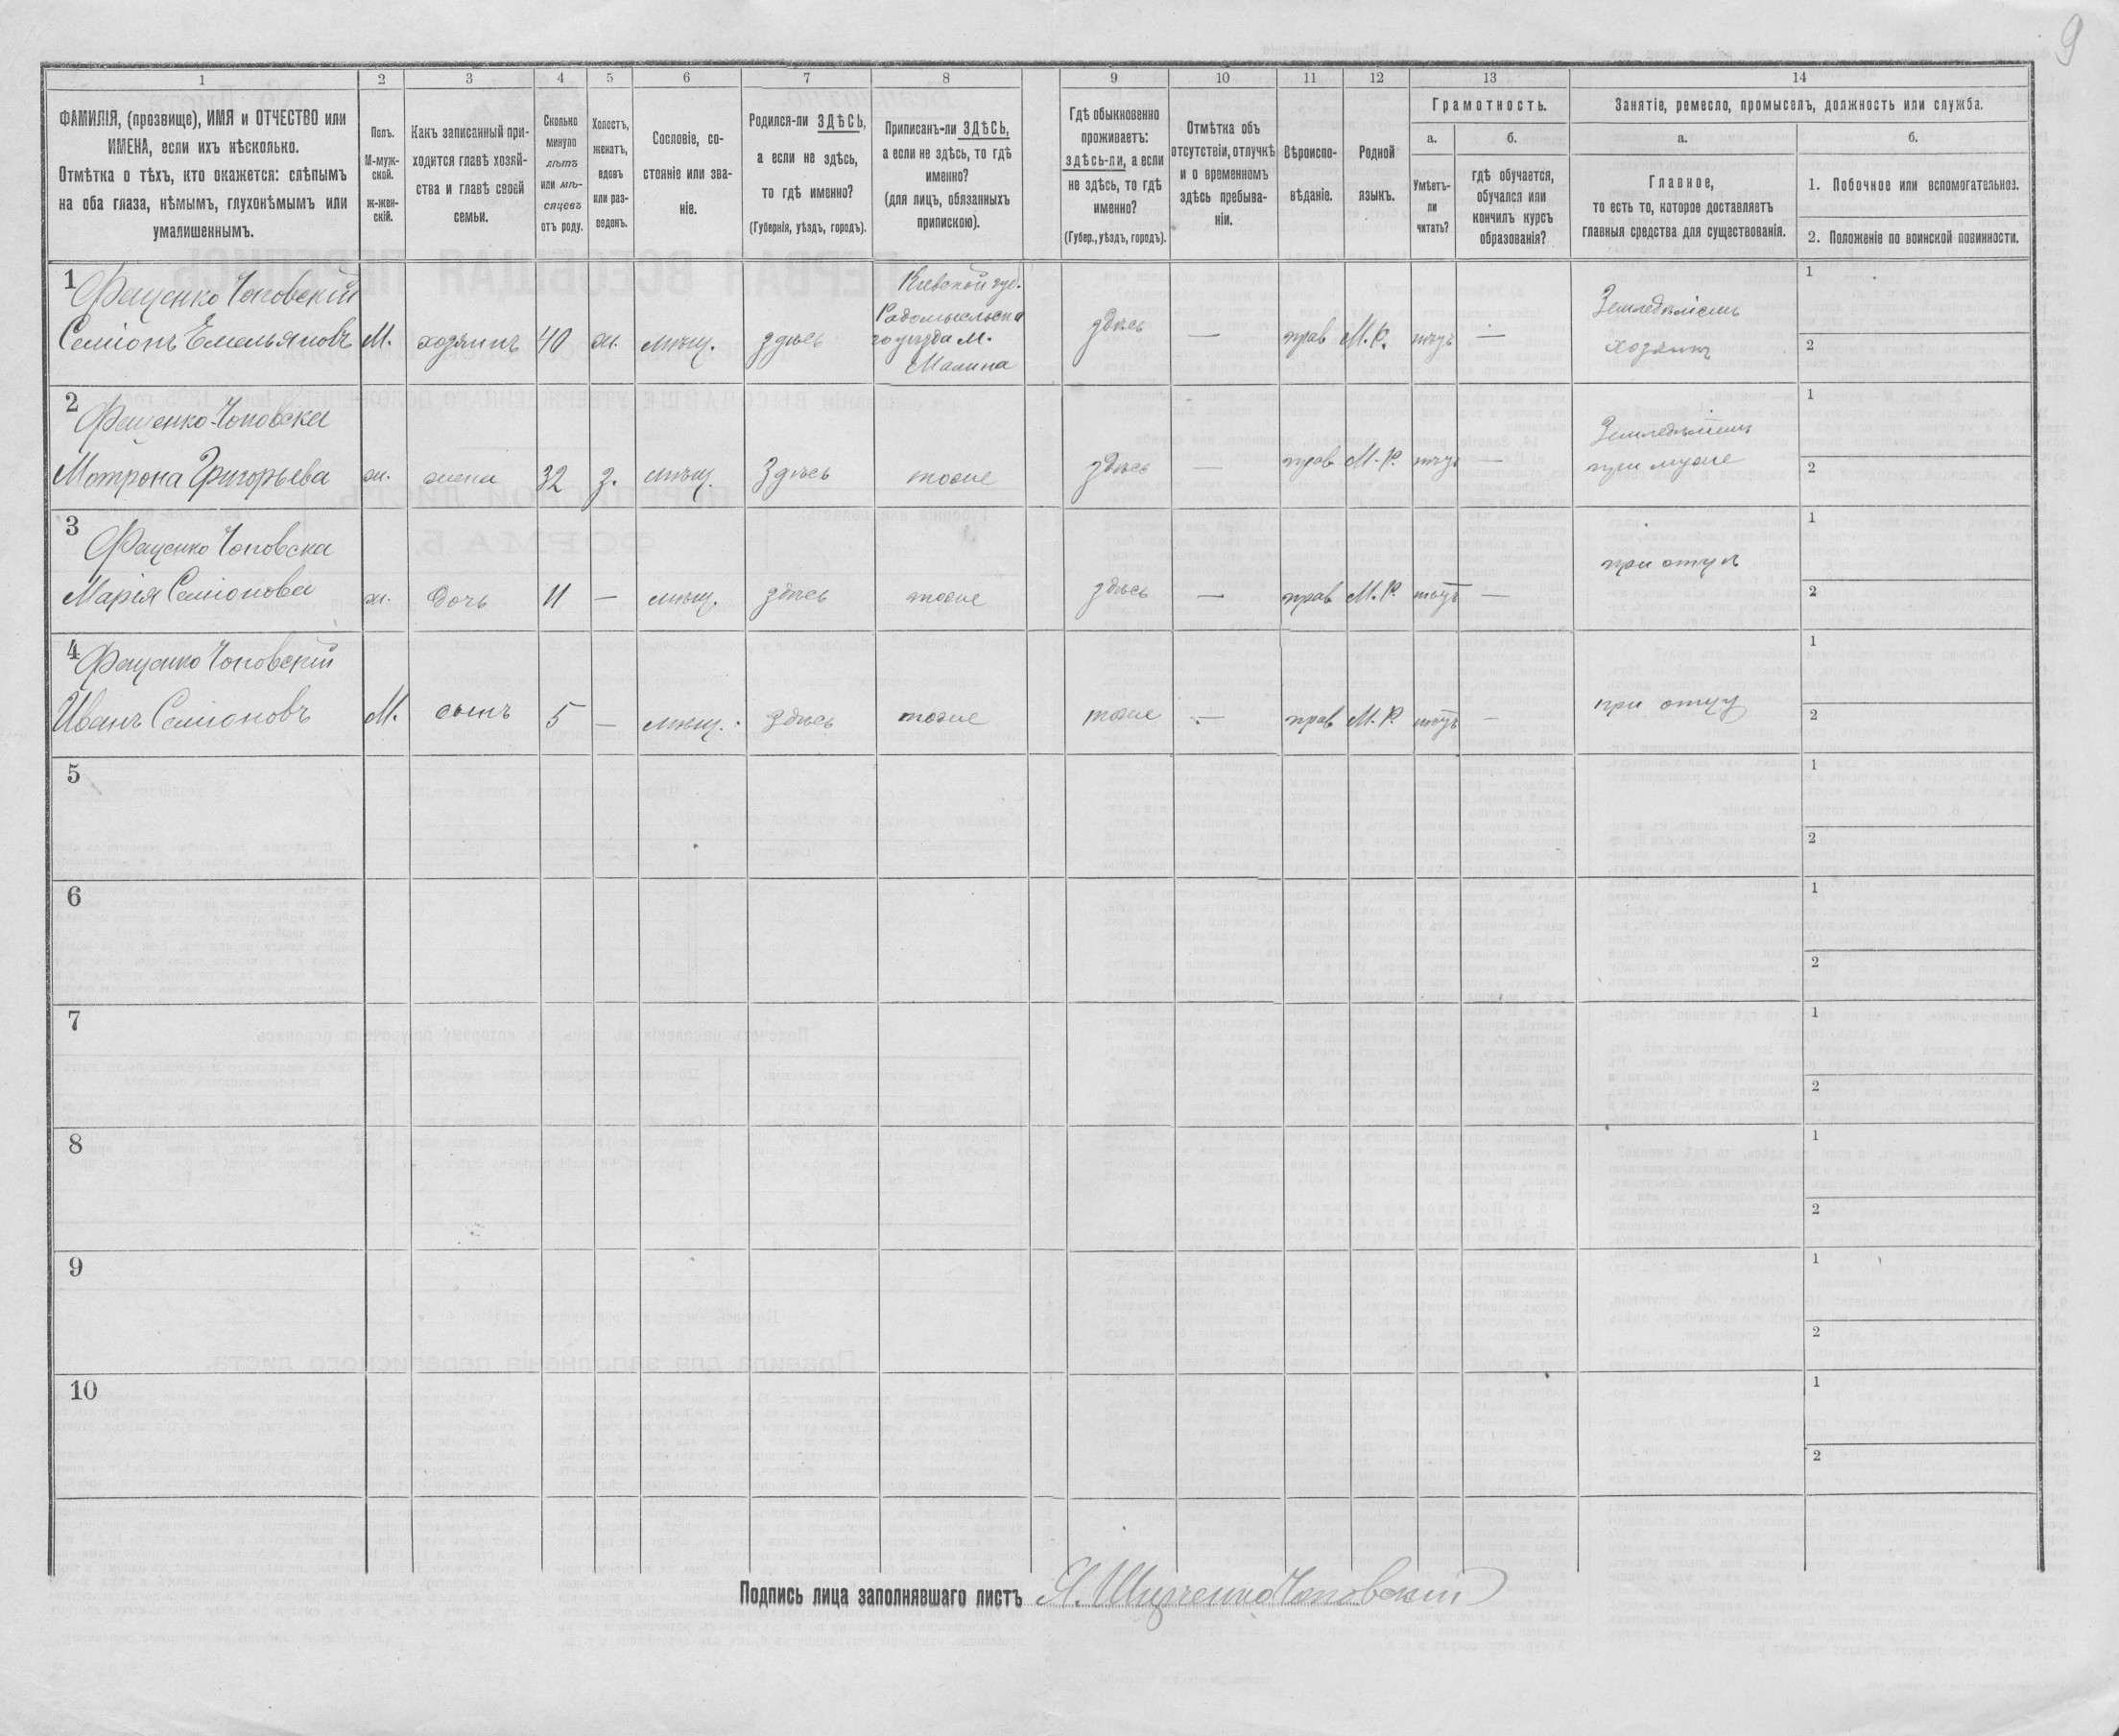 9
1
2
3
4
5
6
7
8
9
10
11
12
13
14
ФАМИЛІЯ, (прозвище), ИМЯ и ОТЧЕСТВО или
ИМЕНА, если ихъ нѣсколько.
Отмѣтка о тѣхъ, кто окажется: слѣпымъ
на оба глаза, нѣмымъ, глухонѣмымъ или
умалишеннымъ.
Полъ.
М-муж-
ской.
ж-жен-
скій.
Какъ записанный при-
ходится главѣ хозяй-
ства и главѣ своей
семьи.
Сколько
минуло
лѣтъ
или мѣ-
сяцевъ
отъ роду.
Холостъ,
женатъ,
вдовъ
или раз-
веденъ.
Сословіе, со-
стояніе или зва-
ніе.
Родился-ли ЗДѢСЬ,
а если не здѣсь,
то гдѣ именно?
(Губернія, уѣздъ, городъ).
Приписанъ-ли ЗДѢСЬ,
а если не здѣсь, то гдѣ
именно?
(для лицъ, обязанныхъ
припискою).
Гдѣ обыкновенно
проживаетъ:
здѣсь-ли, а если
не здѣсь, то гдѣ
именно?
(Губер., уѣздъ, городъ).
Отмѣтка объ
отсутствіи, отлучкѣ
и о временномъ
здѣсь пребыва-
ніи.
Вѣроиспо-
вѣданіе.
Родной
языкъ.
Грамотность.
а.
Умѣетъ-
ли
читать?
б.
гдѣ обучается,
обучался или
кончилъ курсъ
образованія?
Занятіе, ремесло, промыселъ, должность или служба.
а.
Главное,
то есть то, которое доставляетъ
главныя средства для существованія.
б.
1. Побочное или вспомогательное.
2. Положеніе по воинской повинности.
1
Фещенко Чоповскій
Семіонъ Емельяновъ
М.
хозяинъ
40
ж.
мѣщ.
здѣсь
Кіевской губ.
Радомысльска
го уѣзда М.
Малина
здѣсь
—
прав
М. Р.
—
Земледѣліемъ
хозяинъ
1
2
2
Фещенко-Чоповска
Мотрона Григорьева
ж.
жена
32
з.
мѣщ.
Здѣсь
тоже
здѣсь
—
прав
М. Р.
—
Земледѣліемъ
при мужѣ
1
2
3
Фещенко Чоповска
Марія Семіонова
ж.
дочь
11
—
мѣщ.
здѣсь
тоже
здѣсь
—
прав
М. Р.
—
при отцѣ
1
2
4
Фещенко Чоповскій
Иванъ Семіоновъ
М.
сынъ
5
—
мѣщ.
здѣсь
тоже
тоже
—
прав
М. Р.
—
при отцу
1
2
5
1
2
6
1
2
7
1
2
8
1
2
9
1
2
10
1
2
Подпись лица заполнявшаго листъ Я. Ищенко Чоповскій